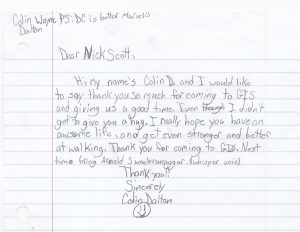 Colin Wayne PS: DC is better Marvels
Dalton
Dear Nick Scott,
Hi, my name's Colin D. and I would like
to say thank you so much for coming to GIS
and giving us a good time. Even though I didn't
get to give you a hug. I really hope you have an
awsome life, and get even stronger and better
at walking. Thank you for coming to GIS. Next
time bring Arnold Swachranagger. (whisper voice)
Thank you!!
Sincerely
Colin Dalton